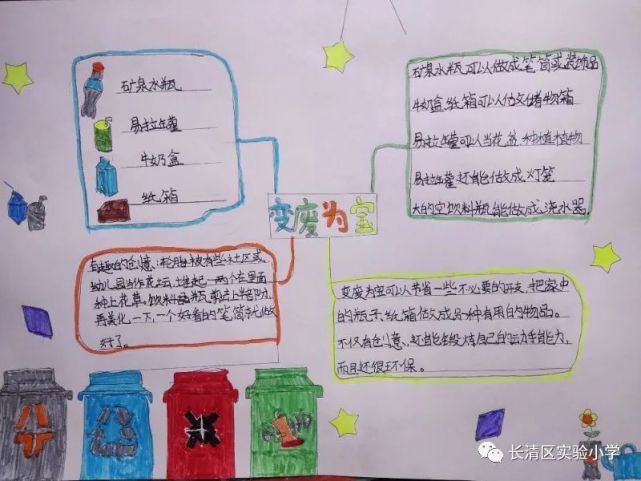 矿泉水瓶
易拉罐
牛奶盒
纸箱
矿泉水瓶可以做成笔筒或装饰品
牛奶盒、纸箱可以做储物箱
易拉罐可以当花盆、种植植物
易拉罐还能做成灯笼
大的空饮料瓶能做成浇水器。
变废为宝
有趣的创意：轮胎被有些社区或
幼儿园当作花坛，堆起一两个在里面
种上花草。饮料瓶剪去上半部分，
再美化一下，一个好看的笔筒就做
好了。
变废为宝可以节省一些不必要的好友，把家中
的瓶子、纸箱做成各种有用的物品。
不仅有创意，还能锻炼自己的动手能力，
而且还很环保。
长清区实验小学